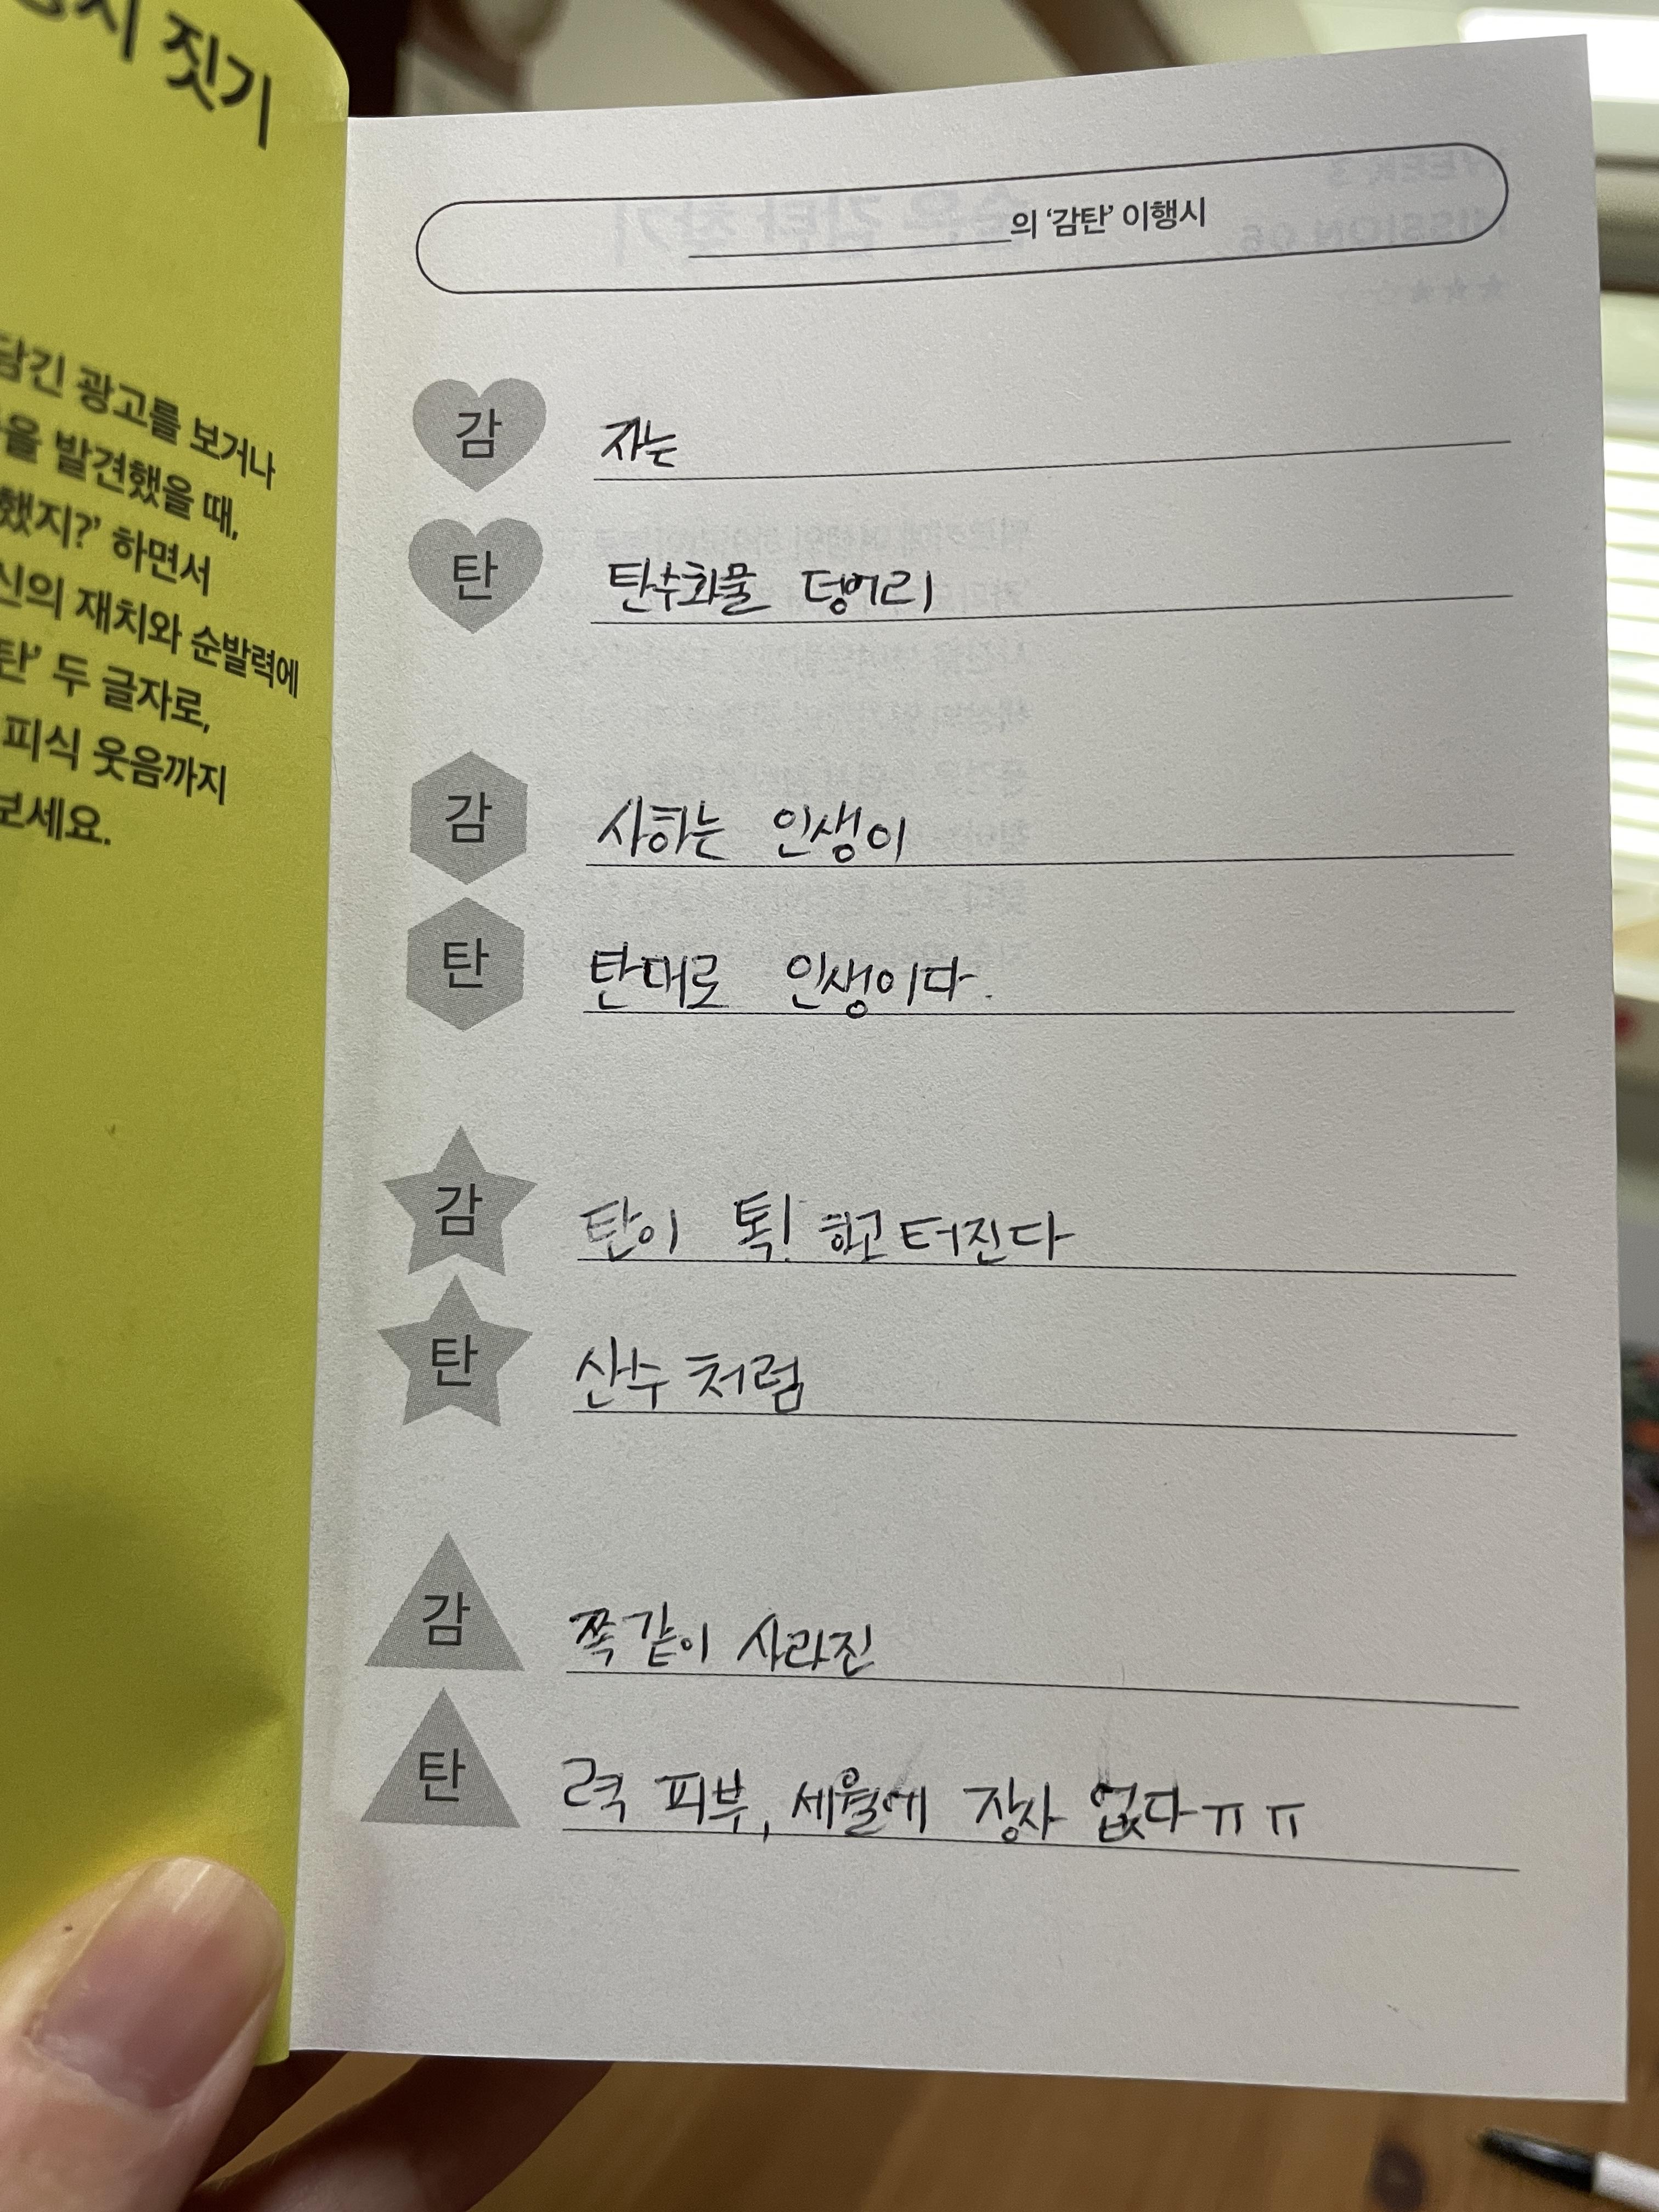 짓기
담긴 광고를 보거나
을 발견했을 때,
했지?' 하면서
신의 재치와 순발력에
탄' 두 글자로,
피식 웃음까지
보세요.
의 '감탄' 이행시
감 자는
탄 탄수화물 덩어리
감 사하는 인생이
탄 탄대로 인생이다.
감 탄이 톡! 하고 터진다
탄 산수처럼
감 쪽같이 사라진
탄 력 피부, 세월에 장사 없다ㅠㅠ